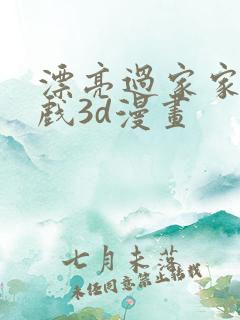 漂亮過家家
戲3d漫畫
七月未落
未任同意禁止轉載